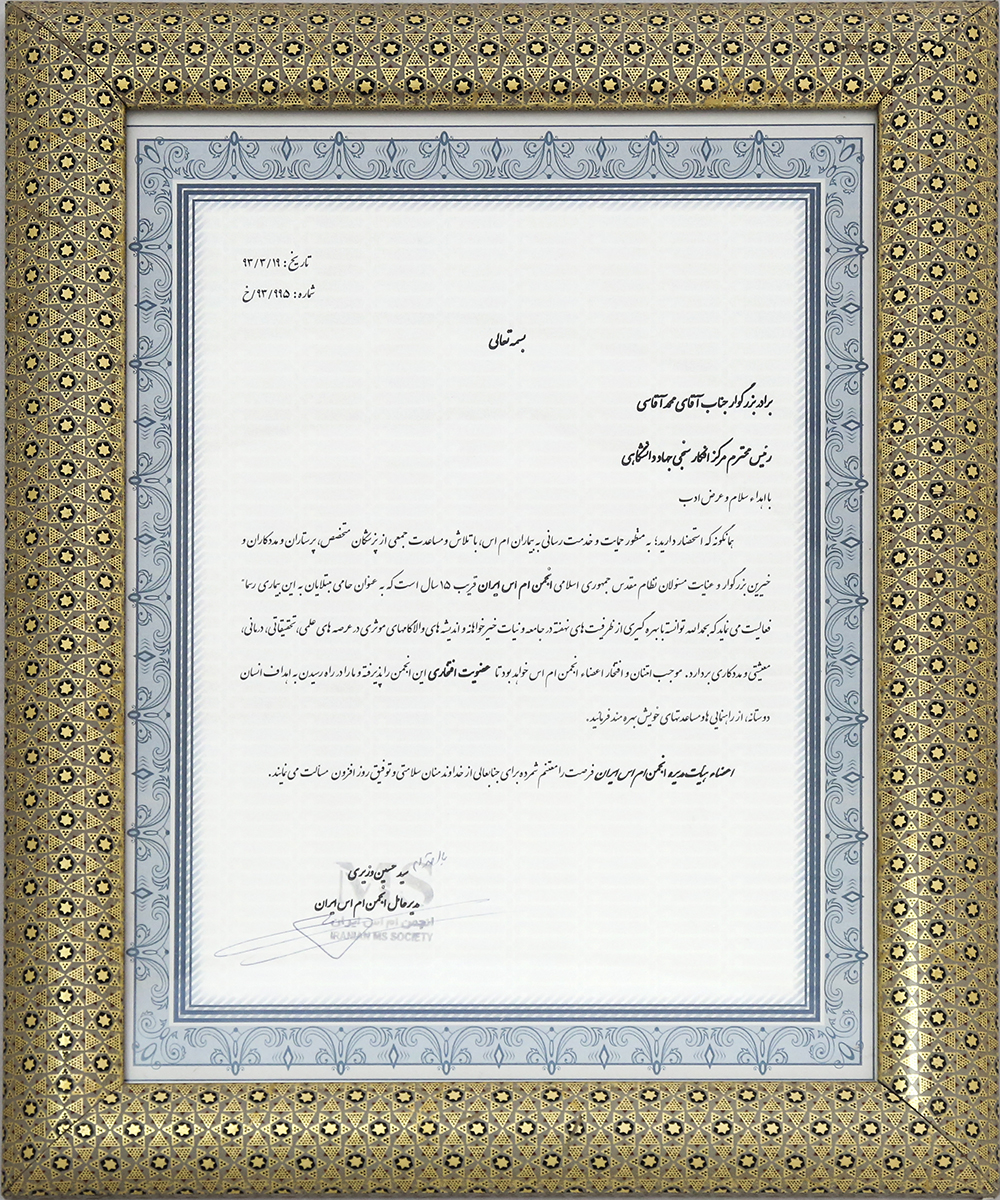 تاریخ: ۹۳/۳/۱۹
شماره: ۹۳/۹۹۵/خ
بسمه تعالی
برادر بزرگوار جناب آقای محمد آقاسی
رئیس محترم مرکز افکار سنجی جهاد دانشگاهی
با اهداء سلام و عرض ادب
همانگونه که استحضار دارید؛ به منظور حمایت و خدمت رسانی به بیماران ام اس، با تلاش و مساعدت جمعی از پزشکان متخصص، پرستاران و مددکاران و
خیرین بزرگوار و عنایت مسئولان نظام مقدس جمهوری اسلامی انجمن ام اس ایران قریب ۱۵ سال است که به عنوان حامی مبتلایان به این بیماری رسماً
فعالیت می نماید که بحمدالله توانسته با بهره گیری از ظرفیت های نهفته در جامعه و نیات خیرخواهانه و اندیشه های والا گامهای موثری در عرصه های علمی، تحقیقاتی، درمانی،
معیشتی و مددکاری بردارد. موجب امتنان و افتخار اعضاء انجمن ام اس خواهد بود تا عضویت افتخاری این انجمن را پذیرفته و ما را در راه رسیدن به اهداف انسان
دوستانه، از راهنمایی ها و مساعدتهای خویش بهره مند فرمائید.
اعضاء هیأت مدیره انجمن ام اس ایران فرصت را مغتنم شمرده برای جنابعالی از خداوند منان سلامتی و توفیق روز افزون مسألت می نمایند.
با احترام
سید حسین وزیری
مدیر عامل انجمن ام اس ایران
MS
انجمن ام اس ایران
IRANIAN MS SOCIETY